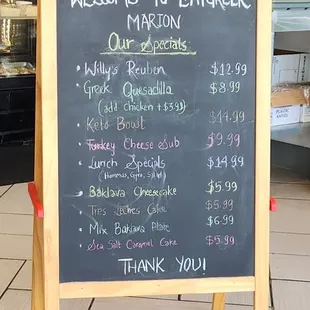 WELCOME TO EATGREEK
MARION
Our Specials
• Willy's Reuben $12.99
• Greek Quesadilla $8.99
(add chicken +$3.99)
• Keto Bowl $14.99
• Turkey Cheese Sub $9.99
• Lunch Specials $14.99
(Hummus, Gyro, Salad)
• Baklava Cheesecake $5.99
• Tres Leches Cake $5.99
• Mix Baklava Plate $6.99
• Sea Salt Caramel Cake $5.99
THANK YOU!